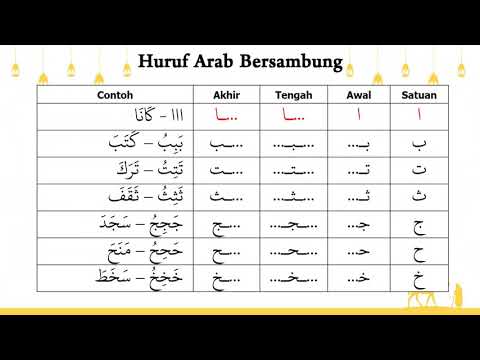 Huruf Arab Bersambung
Contoh Akhir Tengah Awal Satuan
ااا - كَانَا ...ـا ...ـا ا ا
بَبِبُ – كَتَبَ ...ـب ...ـبـ... بـ... ب
تَتِتُ – تَرَكَ ...ـت ...ـتـ... تـ... ت
ثَثِثُ – ثَقَفَ ...ـث ...ـثـ... ثـ... ث
جَجِجُ – سَجَدَ ...ـج ...ـجـ... جـ... ج
حَحِحُ – مَنَحَ ...ـح ...ـحـ... حـ... ح
خَخِخُ – سَخَطَ ...ـخ ...ـخـ... خـ... خ